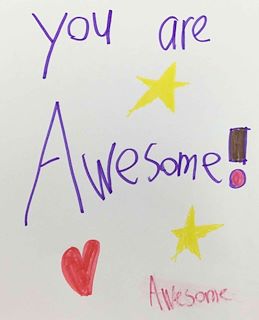 you are
Awesome!
Awesome